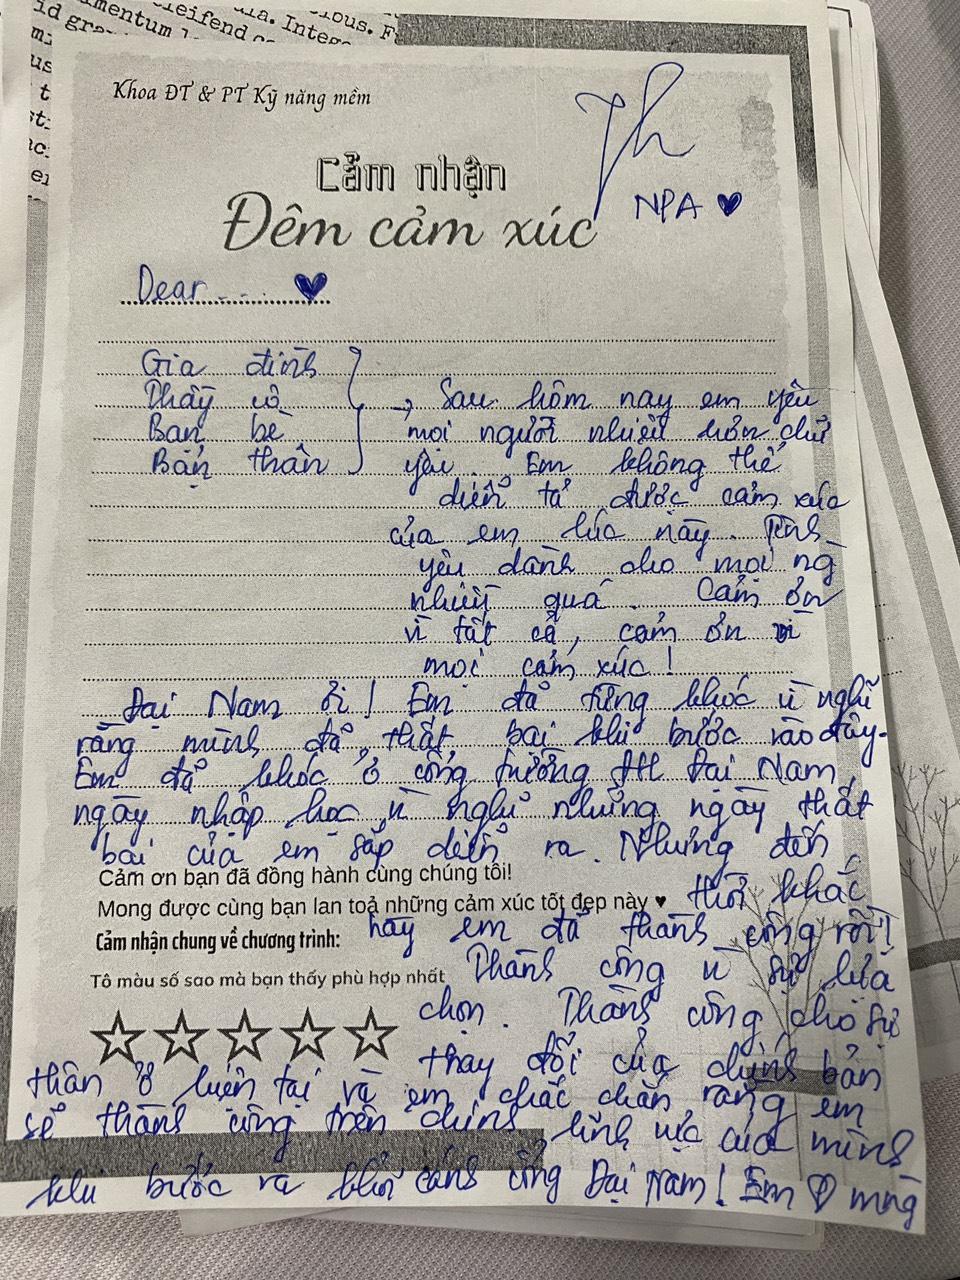 imentum
eleifend
ula. Integе
ibus. F
id gra
Khoa ĐT & PT Kỹ năng mềm
Th
NPA ♥
Cảm nhận
Đêm cảm xúc
Dear..... ♥
Gia đình
Thầy cô → Sau hôm nay em yêu
Bạn bè mọi người nhiều hơn chữ
Bản thân yêu. Em không thể
diễn tả được cảm xúc
của em lúc này. Tình
yêu dành cho mọi ng
nhiều quá. Cảm ơn
vì tất cả, cảm ơn vì
mọi cảm xúc!
Đại Nam ơi! Em đã từng khóc vì nghĩ
rằng mình đã thất bại khi bước vào đây.
Em đã khóc ở cổng trường ĐH Đại Nam,
ngày nhập học vì nghĩ những ngày thất
bại của em sắp diễn ra. Nhưng đến
Cảm ơn bạn đã đồng hành cùng chúng tôi!
thời khắc
Mong được cùng bạn lan toả những cảm xúc tốt đẹp này ♥
này em đã thành công rồi!
Cảm nhận chung về chương trình:
Thành công vì sự lựa
Tô màu số sao mà bạn thấy phù hợp nhất
chọn. Thành công cho sự
thay đổi của chính bản
thân ở hiện tại và em chắc chắn rằng em
sẽ thành công trên chính lĩnh vực của mình
khi bước ra khỏi cánh cổng Đại Nam! Em ♡ mng